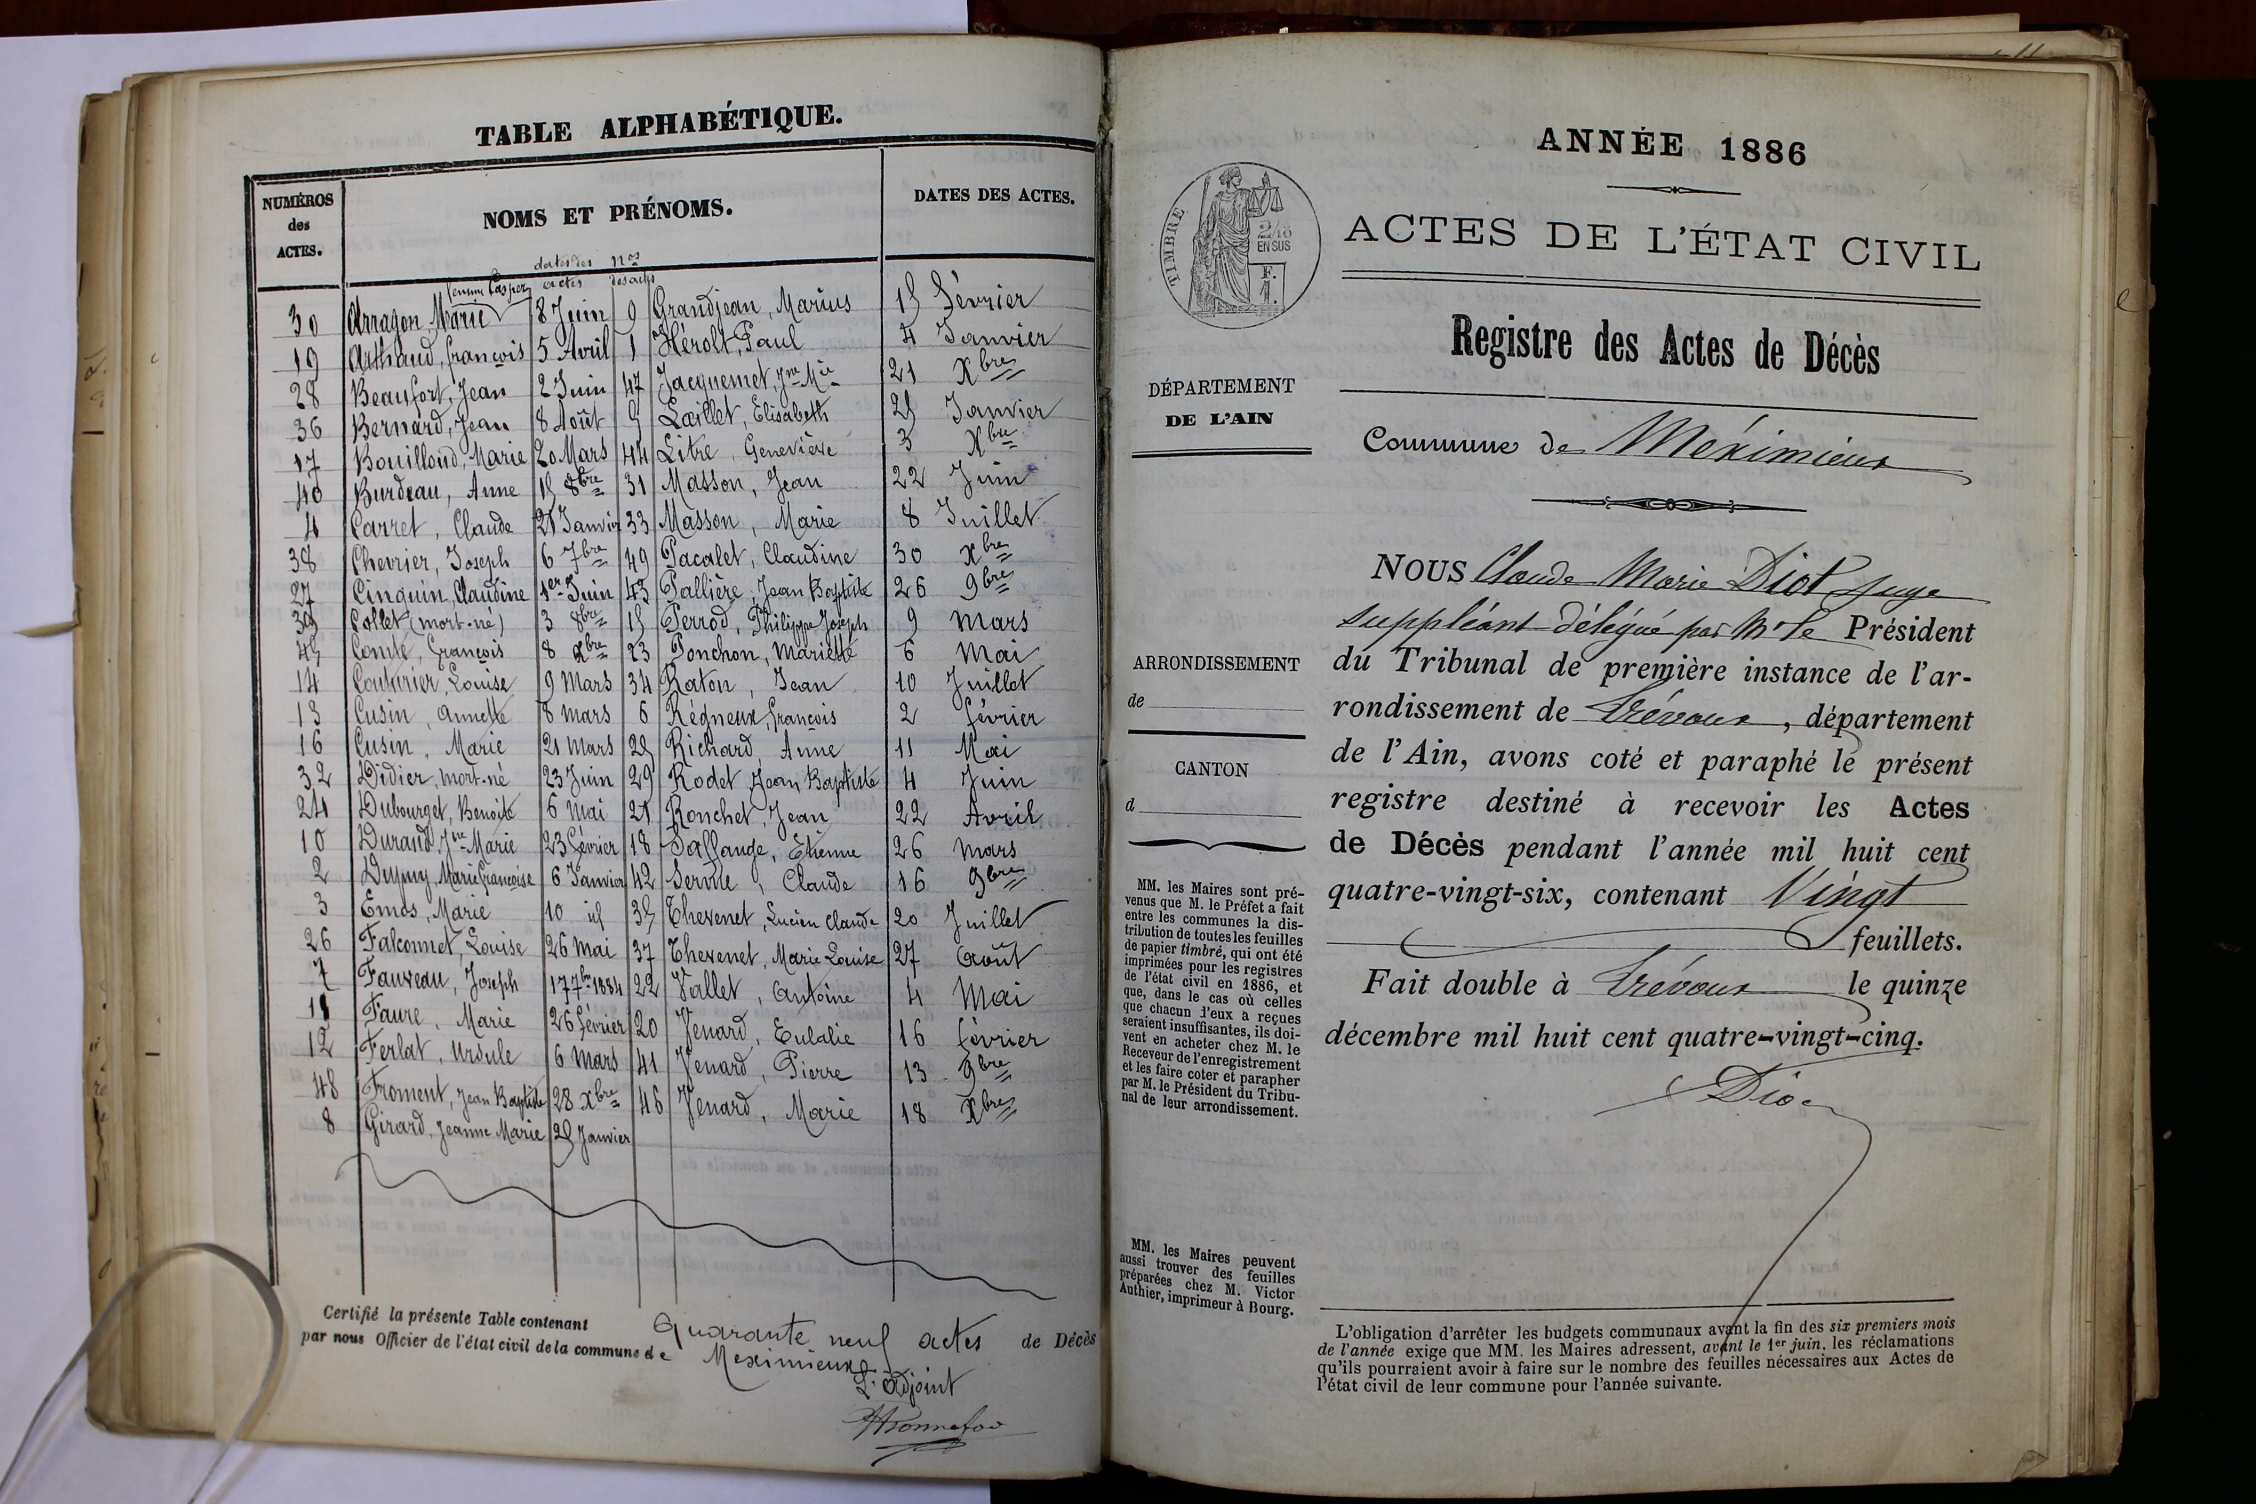 TABLE ALPHABÉTIQUE.
NUMÉROS des ACTES.
NOMS ET PRÉNOMS.
DATES DES ACTES.
dates des actes nos des actes
30 Arragon, Marie 8 Juin 9 Grandjean, Marius 15 Février
19 Arthaud, françois 5 Avril 1 Hérolt, Paul 4 Janvier
28 Beaufort, Jean 2 Juin 47 Jacquemet, Jne Mie 21 Xbre
36 Bernard, Jean 8 Août 5 Laillet, Elisabeth 25 Janvier
17 Bouilloud, Marie 20 Mars 44 Litre, Geneviève 3 Xbre
40 Burdeau, Anne 15 8bre 31 Masson, Jean 22 Juin
4 Carret, Claude 21 Janvier 33 Masson, Marie 8 Juillet
38 Chevrier, Joseph 6 7bre 49 Pacalet, Claudine 30 Xbre
27 Cinquin, Claudine 1er Juin 43 Pallière, Jean Baptiste 26 9bre
39 Collet (mort-né) 3 8bre 15 Perrod, Philippe Joseph 9 Mars
45 Comte, François 8 Xbre 23 Ponchon, Mariette 6 Mai
14 Couturier, Louise 9 Mars 34 Raton, Jean 10 Juillet
13 Cusin, Annette 8 Mars 6 Régneux, françois 2 février
16 Cusin, Marie 21 Mars 25 Richard, Anne 11 Mai
32 Didier, mort-né 23 Juin 29 Rodet, Jean Baptiste 4 Juin
24 Dubourget, Benoite 6 Mai 21 Ronchet, Jean 22 Avril
10 Durand, Jne Marie 23 Février 18 Sallange, Etienne 26 Mars
2 Dupuy, Marie Françoise 6 Janvier 42 Servile, Claude 16 9bre
3 Emos, Marie 10 id 35 Thevenet, Lucien Claude 20 Juillet
26 Falconnet, Louise 26 Mai 37 Thevenet, Marie Louise 27 Août
7 Fauveau, Joseph 17 7bre 1884 22 Vallet, Antoine 4 Mai
11 Faure, Marie 26 Février 20 Venard, Eulalie 16 février
12 Ferlat, Ursule 6 Mars 41 Venard, Pierre 13 9bre
48 Froment, Jean Baptiste 28 Xbre 46 Venard, Marie 18 Xbre
8 Girard, Jeanne Marie 25 Janvier
Certifié la présente Table contenant Quarante neuf actes de Décès
par nous Officier de l'état civil de la commune de Meximieux
L'Adjoint
ANNÉE 1886
TIMBRE
2/10
EN SUS
F.
1.
ACTES DE L'ÉTAT CIVIL
Registre des Actes de Décès
DÉPARTEMENT
DE L'AIN
Commune de Méximieux
NOUS Claude Marie Diot juge
suppléant délégué par Mr le Président
du Tribunal de première instance de l'ar-
rondissement de Trévoux, département
de l'Ain, avons coté et paraphé le présent
registre destiné à recevoir les Actes
de Décès pendant l'année mil huit cent
quatre-vingt-six, contenant Vingt
feuillets.
Fait double à Trévoux le quinze
décembre mil huit cent quatre-vingt-cinq.
Diot
ARRONDISSEMENT
de
CANTON
d
MM. les Maires sont pré-
venus que M. le Préfet a fait
entre les communes la dis-
tribution de toutes les feuilles
de papier timbré, qui ont été
imprimées pour les registres
de l'état civil en 1886, et
que, dans le cas où celles
que chacun d'eux a reçues
seraient insuffisantes, ils doi-
vent en acheter chez M. le
Receveur de l'enregistrement
et les faire coter et parapher
par M. le Président du Tribu-
nal de leur arrondissement.
MM. les Maires peuvent
aussi trouver des feuilles
préparées chez M. Victor
Authier, imprimeur à Bourg.
L'obligation d'arrêter les budgets communaux avant la fin des six premiers mois
de l'année exige que MM. les Maires adressent, avant le 1er juin, les réclamations
qu'ils pourraient avoir à faire sur le nombre des feuilles nécessaires aux Actes de
l'état civil de leur commune pour l'année suivante.